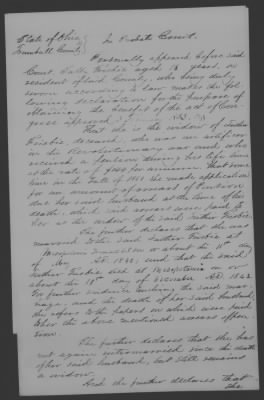 State of Ohio
Trumbull County
In Probate Court.
Personally appeared before said
Court Sally Frisbie aged years, a
resident of said County, who being duly
sworn according to law makes the fol-
lowing declaration for the purpose of
obtaining the benefit of the act of Con-
gress approved
That she is the widow of Luther
Frisbie deceased, who was an artificer
in the Revolutionary war and who
received a pension during his life time
at the rate of per annum. That some
time in the fall of she made application
for an amount of arrears of Pension
due her said husband at the time of his
death, which said arrears were paid to
her as the widow of the said Luther Frisbie.
She further declares that she was
married to the said Luther Frisbie at
on or about the day
of AD. and that the said
Luther Frisbie died at Mesopotamia on or
about the day of AD.
For further evidence touching the said mar-
riage, and the death of her said husband,
she refers to the papers on which were paid
to her the above mentioned arrears of Pen-
sion.
She further declares that she has
not again intermarried since the death
of her said husband, but still remains
a widow.
And she further declares that
she